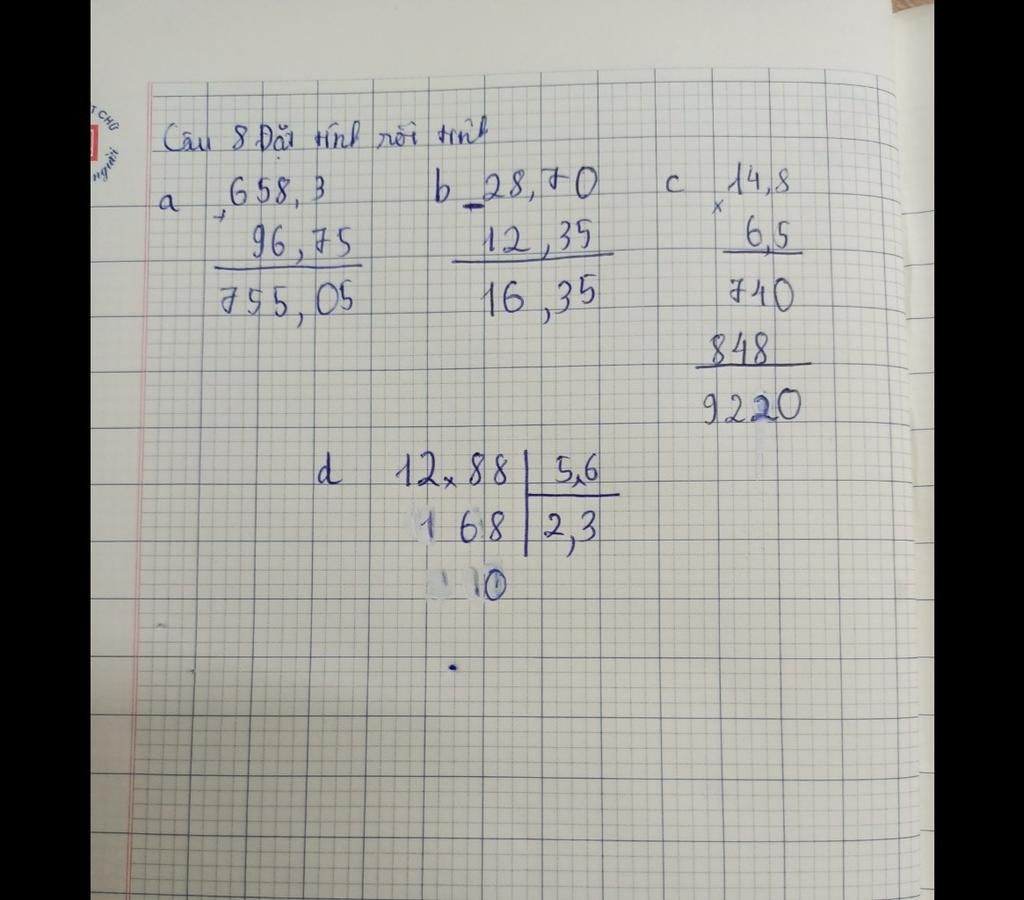 T CHỮ
người
Câu 8 Đặt tính rồi tính
a 658,3
+
96,75
755,05
b -28,70
12,35
16,35
c 14,8
x
6,5
740
848
9220
d 12,88 5,6
168 2,3
10